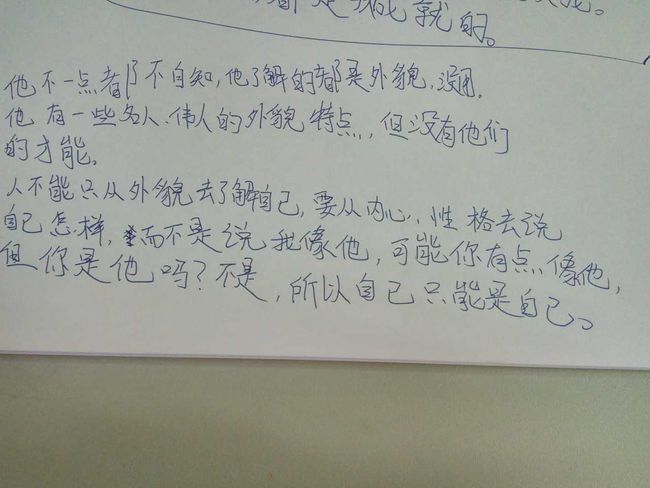 都是我成就的。
他不一点都不自知,他了解的都是外貌,没用.
他有一些名人、伟人的外貌特点,但没有他们
的才能.
人不能只从外貌去了解自己,要从内心、性格去说
自己怎样,而不是说我像他,可能你有点像他,
但你是他吗?不是,所以自己只能是自己。